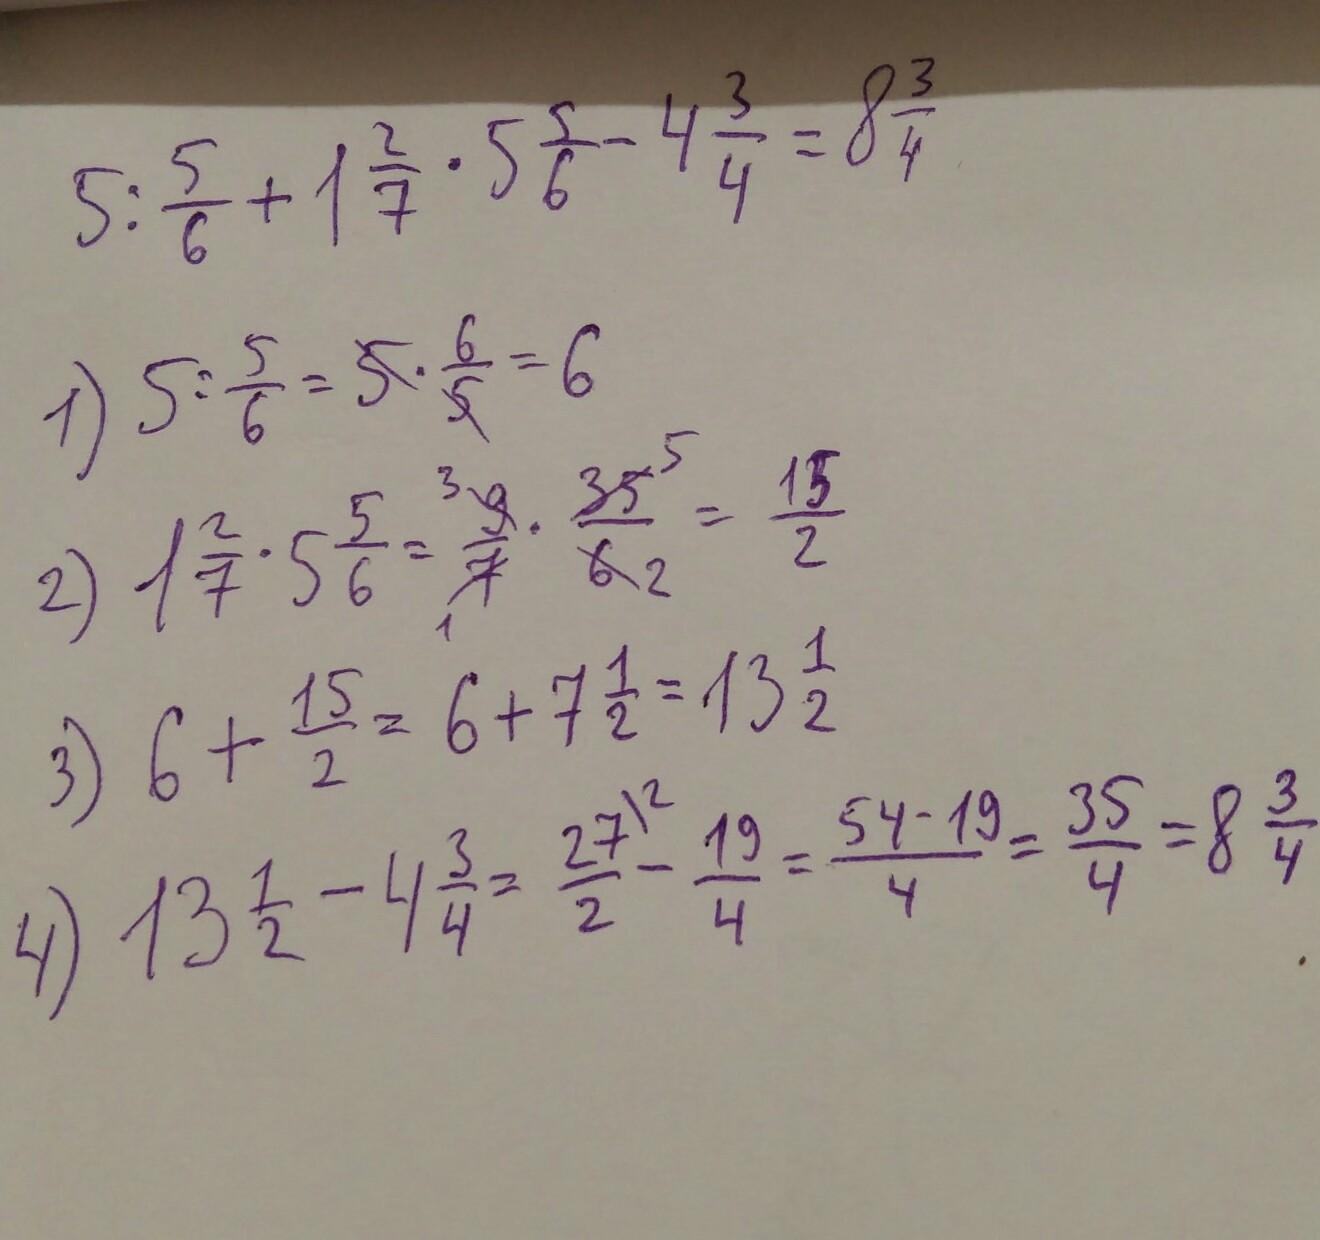 5 : 5/6 + 1 2/7 · 5 5/6 - 4 3/4 = 8 3/4
1) 5 : 5/6 = 5 · 6/5 = 6
2) 1 2/7 · 5 5/6 = 3 9/7 1 · 35 5/6 2 = 15/2
3) 6 + 15/2 = 6 + 7 1/2 = 13 1/2
4) 13 1/2 - 4 3/4 = 27\2/2 - 19/4 = 54 - 19/4 = 35/4 = 8 3/4